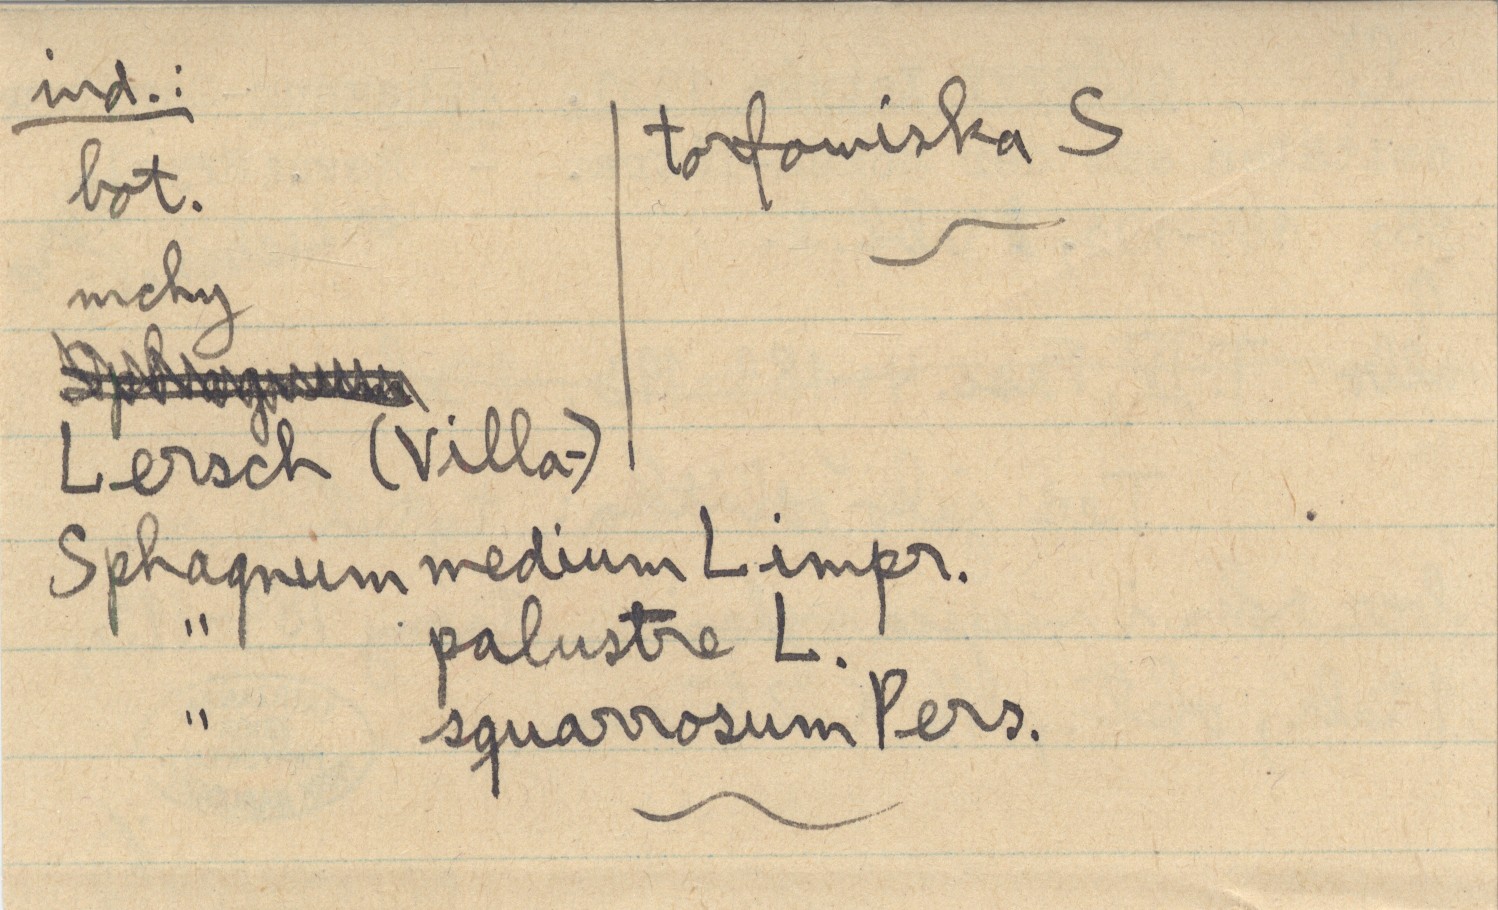 ind.:
bot.
mchy
Lersch (Villa-)
torfowiska S
Sphagnum medium Limpr.
" palustre L.
" squarrosum Pers.